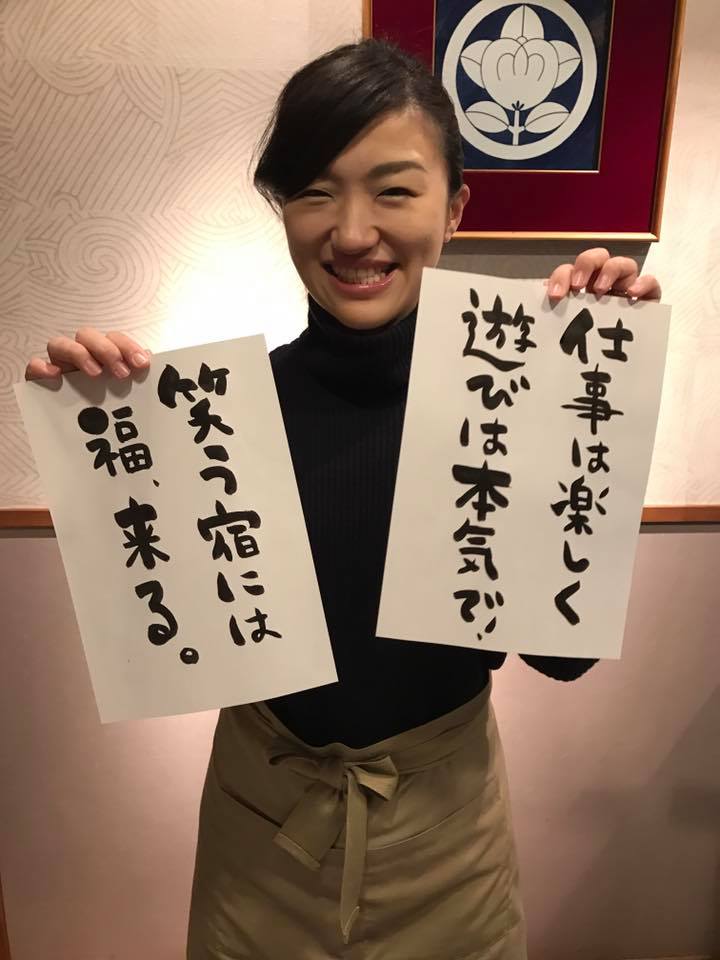 笑う宿には
福、来る。
仕事は楽しく
遊びは本気で!